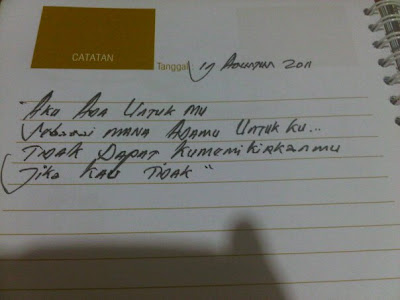 CATATAN
Tanggal : 19 Agustus 2011
"Aku Ada Untuk mu
Sebagai mana Adamu Untuk Ku...
Tidak Dapat Kumemikirkanmu
Jika Kau Tidak"